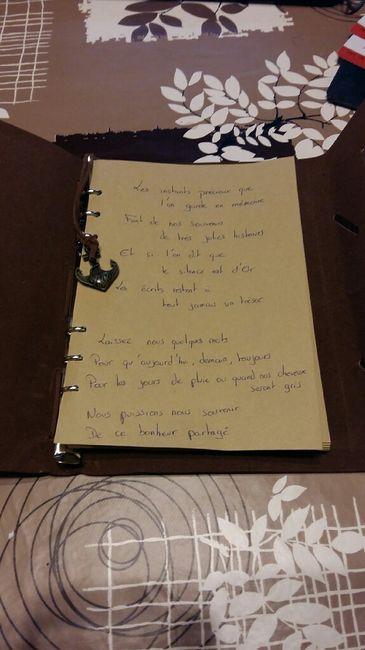 Les instants précieux que
l'on garde en mémoire
Font de nos souvenirs
de très jolies histoires
Et si l'on dit que
le silence est d'Or
Les écrits restent à
tout jamais un trésor
Laissez nous quelques mots
Pour qu'aujourd'hui, demain, toujours
Pour les jours de pluie ou quand nos cheveux
seront gris
Nous puissions nous souvenir
De ce bonheur partagé